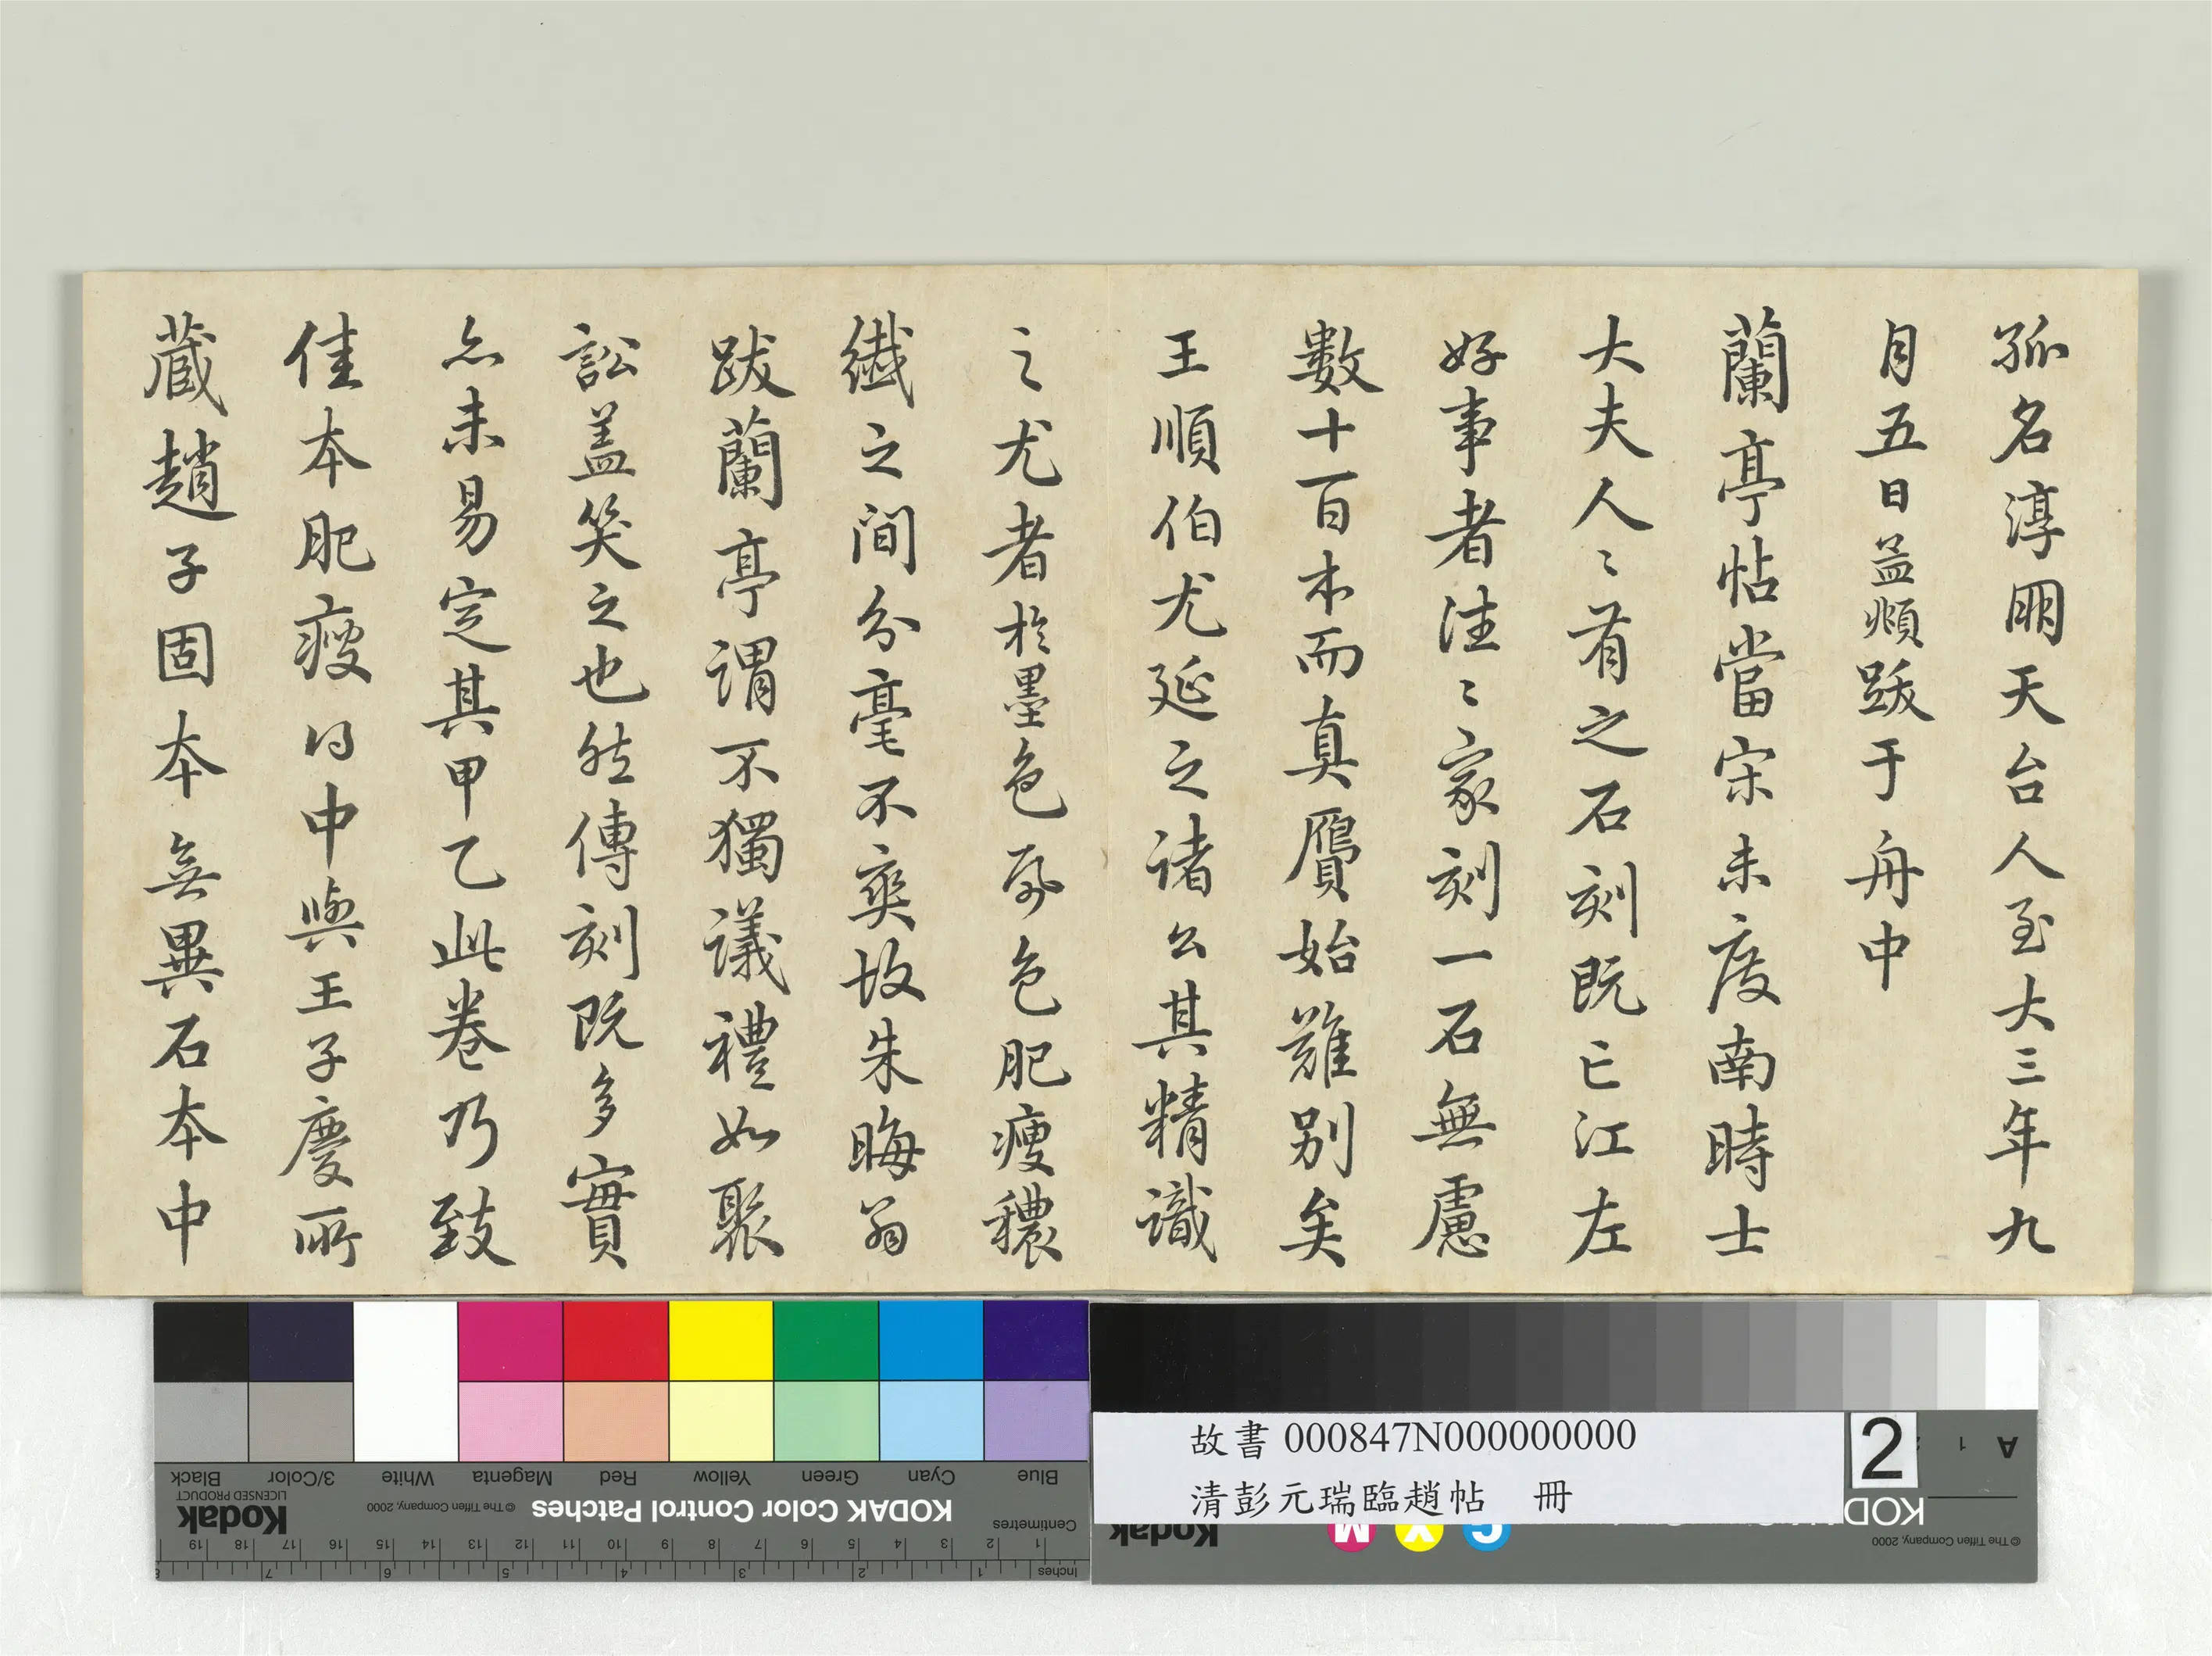 孤名淳朋天台人至大三年九
月五日孟頫跋于舟中
蘭亭帖當宋未度南時士
大夫人〻有之石刻既亡江左
好事者往〻家刻一石無慮
數十百本而真贗始難別矣
王順伯尤延之諸公其精識
之尤者於墨色帋色肥瘦穠
纖之間分毫不爽故朱晦翁
跋蘭亭謂不獨議禮如聚
訟盖笑之也然傳刻既多實
亦未易定其甲乙此卷乃致
佳本肥瘦得中與王子慶所
藏趙子固本無異石本中
故書000847N000000000
清彭元瑞臨趙帖 冊
2
Black 3/Color White Magenta Red Yellow Green Cyan Blue
KODAK Color Control Patches
Kodak
LICENSED PRODUCT
© The Tiffen Company, 2000
Centimetres
1 2 3 4 5 6 7 8 9 10 11 12 13 14 15 16 17 18 19
Inches
1 2 3 4 5 6 7 8
A 1 2
KOD
Kodak
C Y M
© The Tiffen Company, 2000